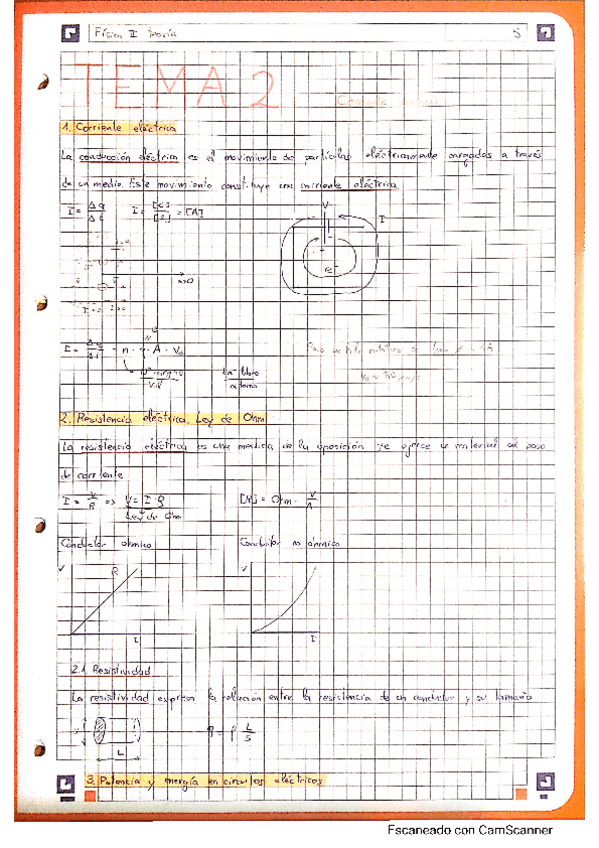 Física II teoría 5
TEMA 2
1. Corriente eléctrica
La conducción eléctrica es el movimiento de partículas eléctricamente cargadas a través
de un medio. Este movimiento constituye una corriente eléctrica.
I = Δq/Δt I = [C]/[s] = [A]
V I
e⁻
I = Δq/Δt = n · q · A · Vd
nº cargas/Vol e⁻ libre/átomo
2. Resistencia eléctrica. Ley de Ohm
La resistencia eléctrica es una medida de la oposición que ofrece un material al paso
de corriente
I = V/R => V = I · R = Ohm · V/A
Ley de Ohm
Conductor ohmico Conductor no óhmico
V R I V I
2.1 Resistividad
La resistividad expresa la relación entre la resistencia de un conductor y su tamaño
S L R = ρ L/S
3. Potencia y energía en circuitos eléctricos
Escaneado con CamScanner